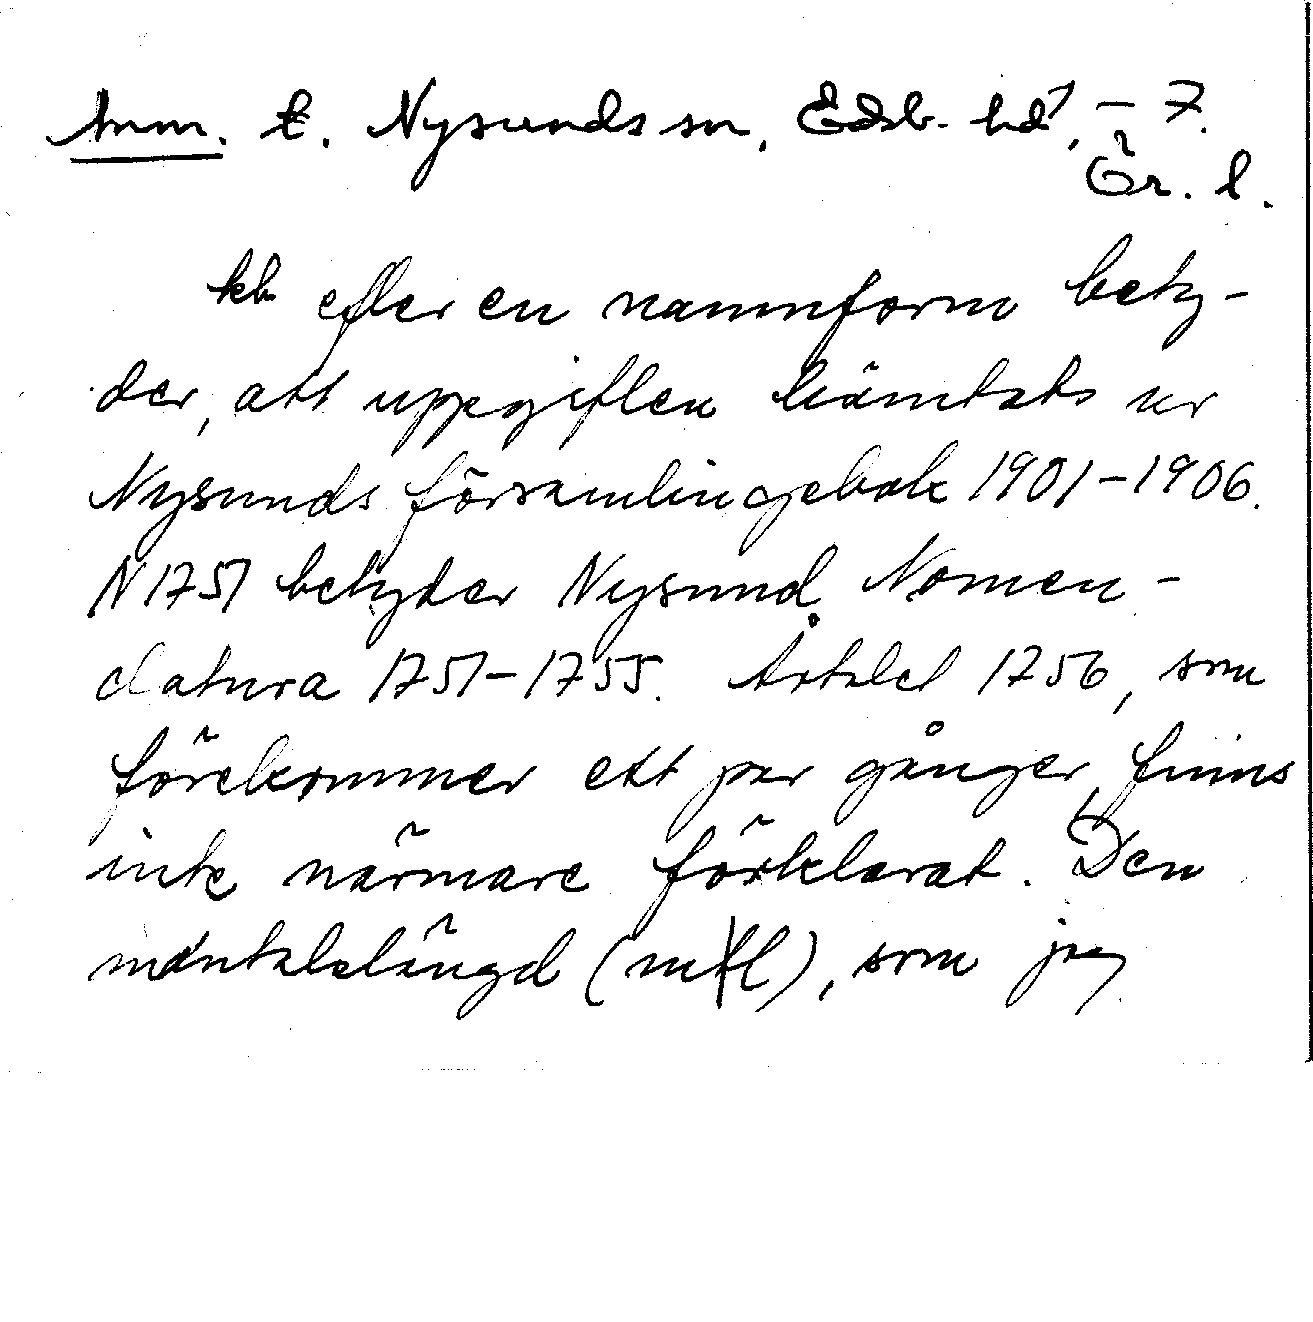 Anm. t. Nysunds sn, Edsb. hd, – 7.
Ör. l.
kb efter en namnform bety-
der, att uppgiften hämtats ur
Nysunds församlingsbok 1901–1906.
N 1751 betyder Nysund Nomen-
clatura 1751–1755. Årtalet 1756, som
förekommer ett par gånger, finns
inte närmare förklarat. Den
mantalslängd (mtl), som jag